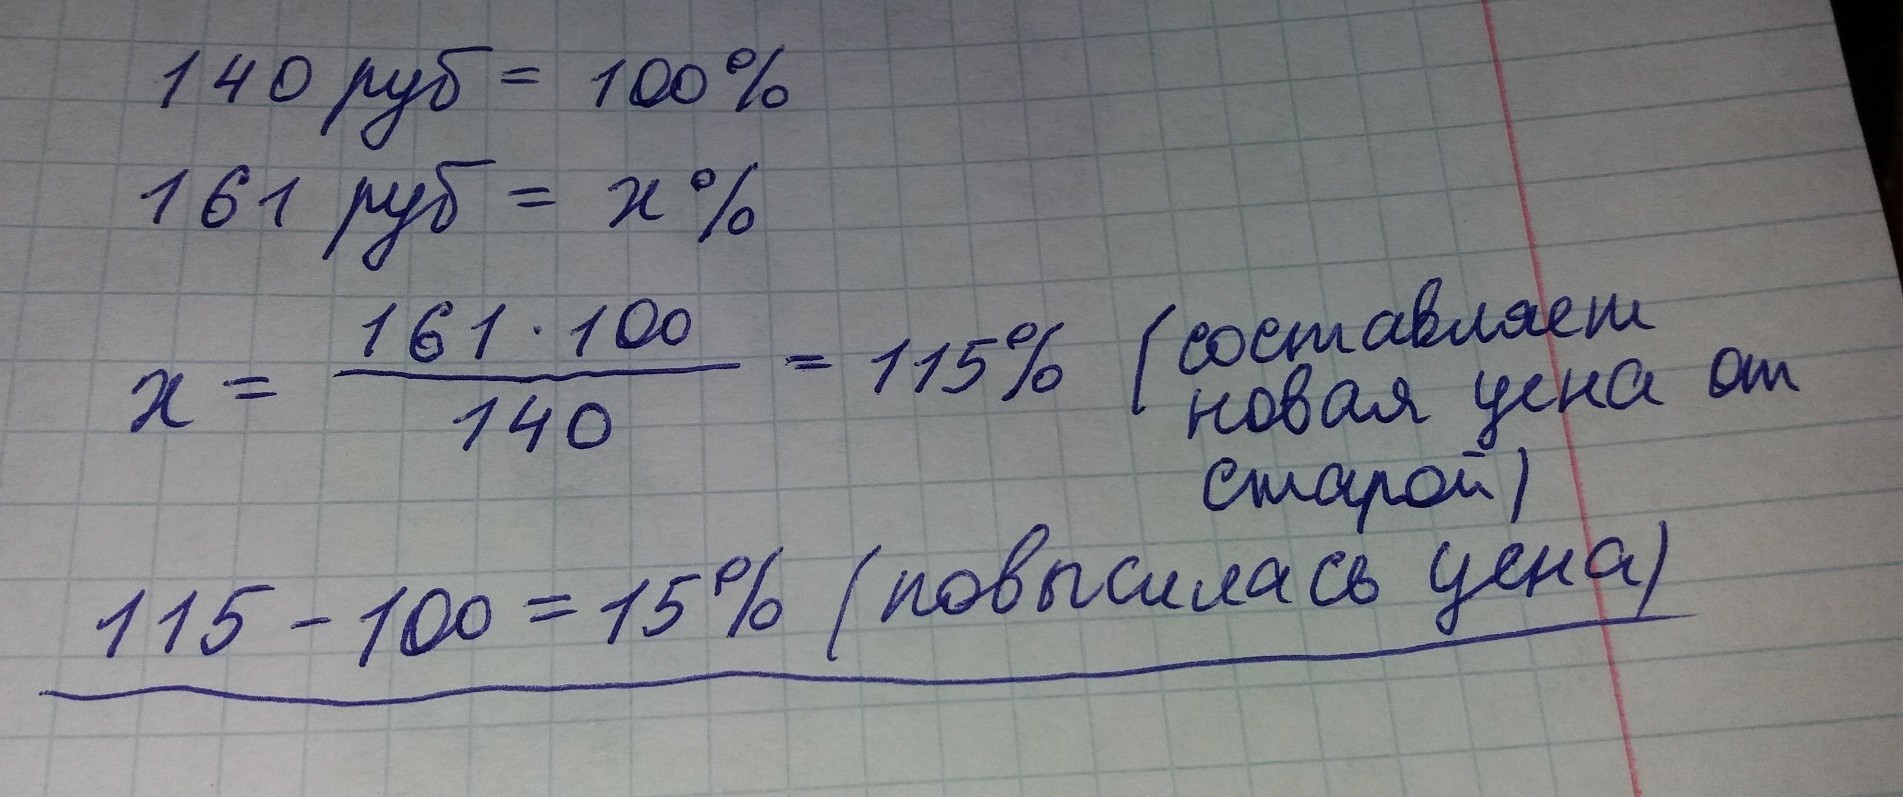 140 руб = 100%
161 руб = x%
x = 161 · 100 / 140 = 115% (составляет
новая цена от
старой)
115 - 100 = 15% (повысилась цена)